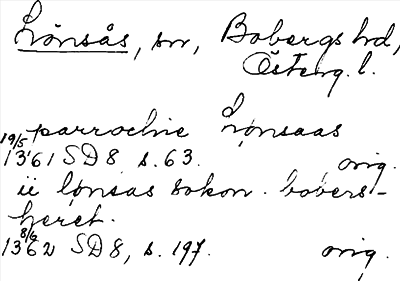 Lönsås, sn, Bobergs hd,
Österg. l.
parrochie Lønsaas
19/5 1361 SD 8 s. 63. orig.
ii lønsas sokon. bobers-
heret.
8/6 1362 SD 8, s. 197. orig.